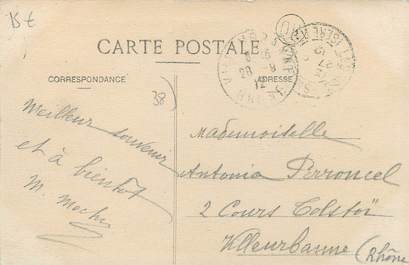 15€
CARTE POSTALE
CORRESPONDANCE
ADRESSE
38
Meilleur souvenir
et à bientôt
M.
Mademoiselle
Antonia Perroncel
2 Cours Tolstoï
Villeurbanne
(Rhône